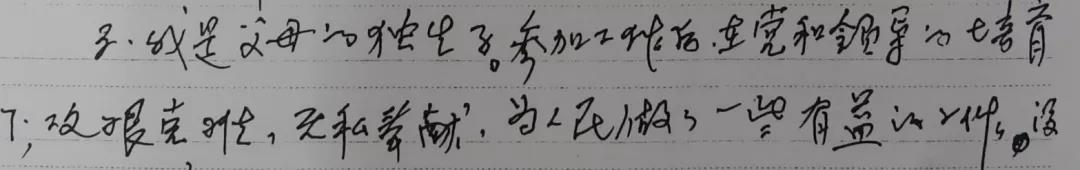 子. 我是父母的独生子。参加工作后, 在党和领导的培育
下, 攻艰克难, 无私奉献, 为人民做了一些有益的工作。没